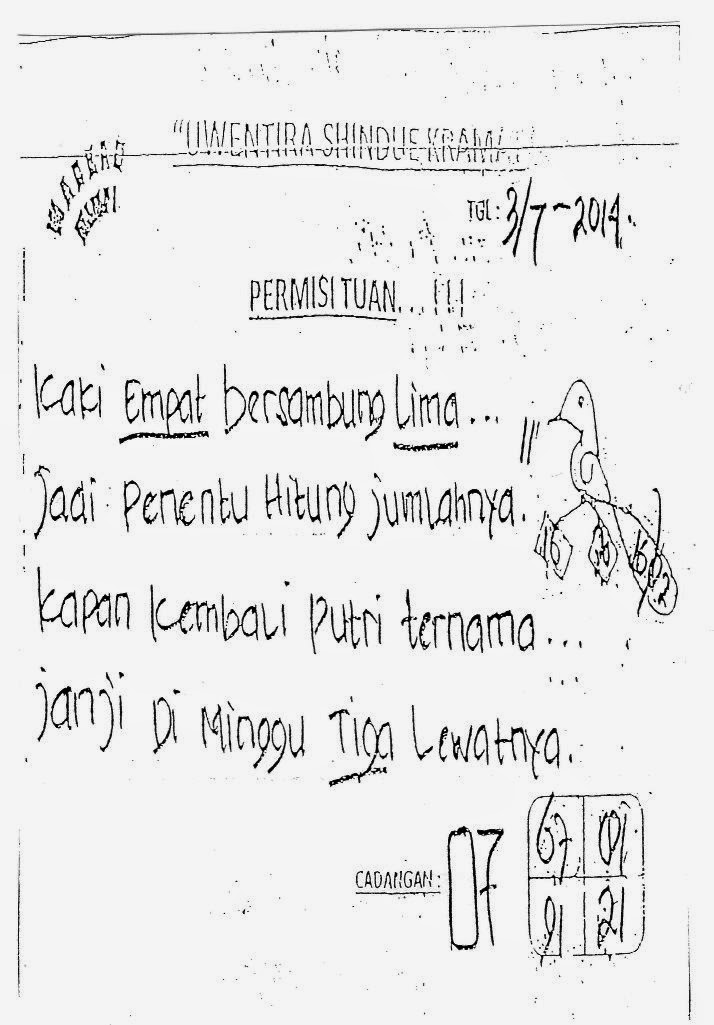 "UWENTIRA SHINDUE KRAMAT"
TGL: 3/7-2014.
PERMISI TUAN...!!!
Kaki Empat bersambung Lima...
Jadi Penentu Hitung jumlahnya.
16
Kapan Kembali Putri ternama...
Janji Di Minggu Tiga Lewatnya.
CADANGAN: 07
67 01
91 21